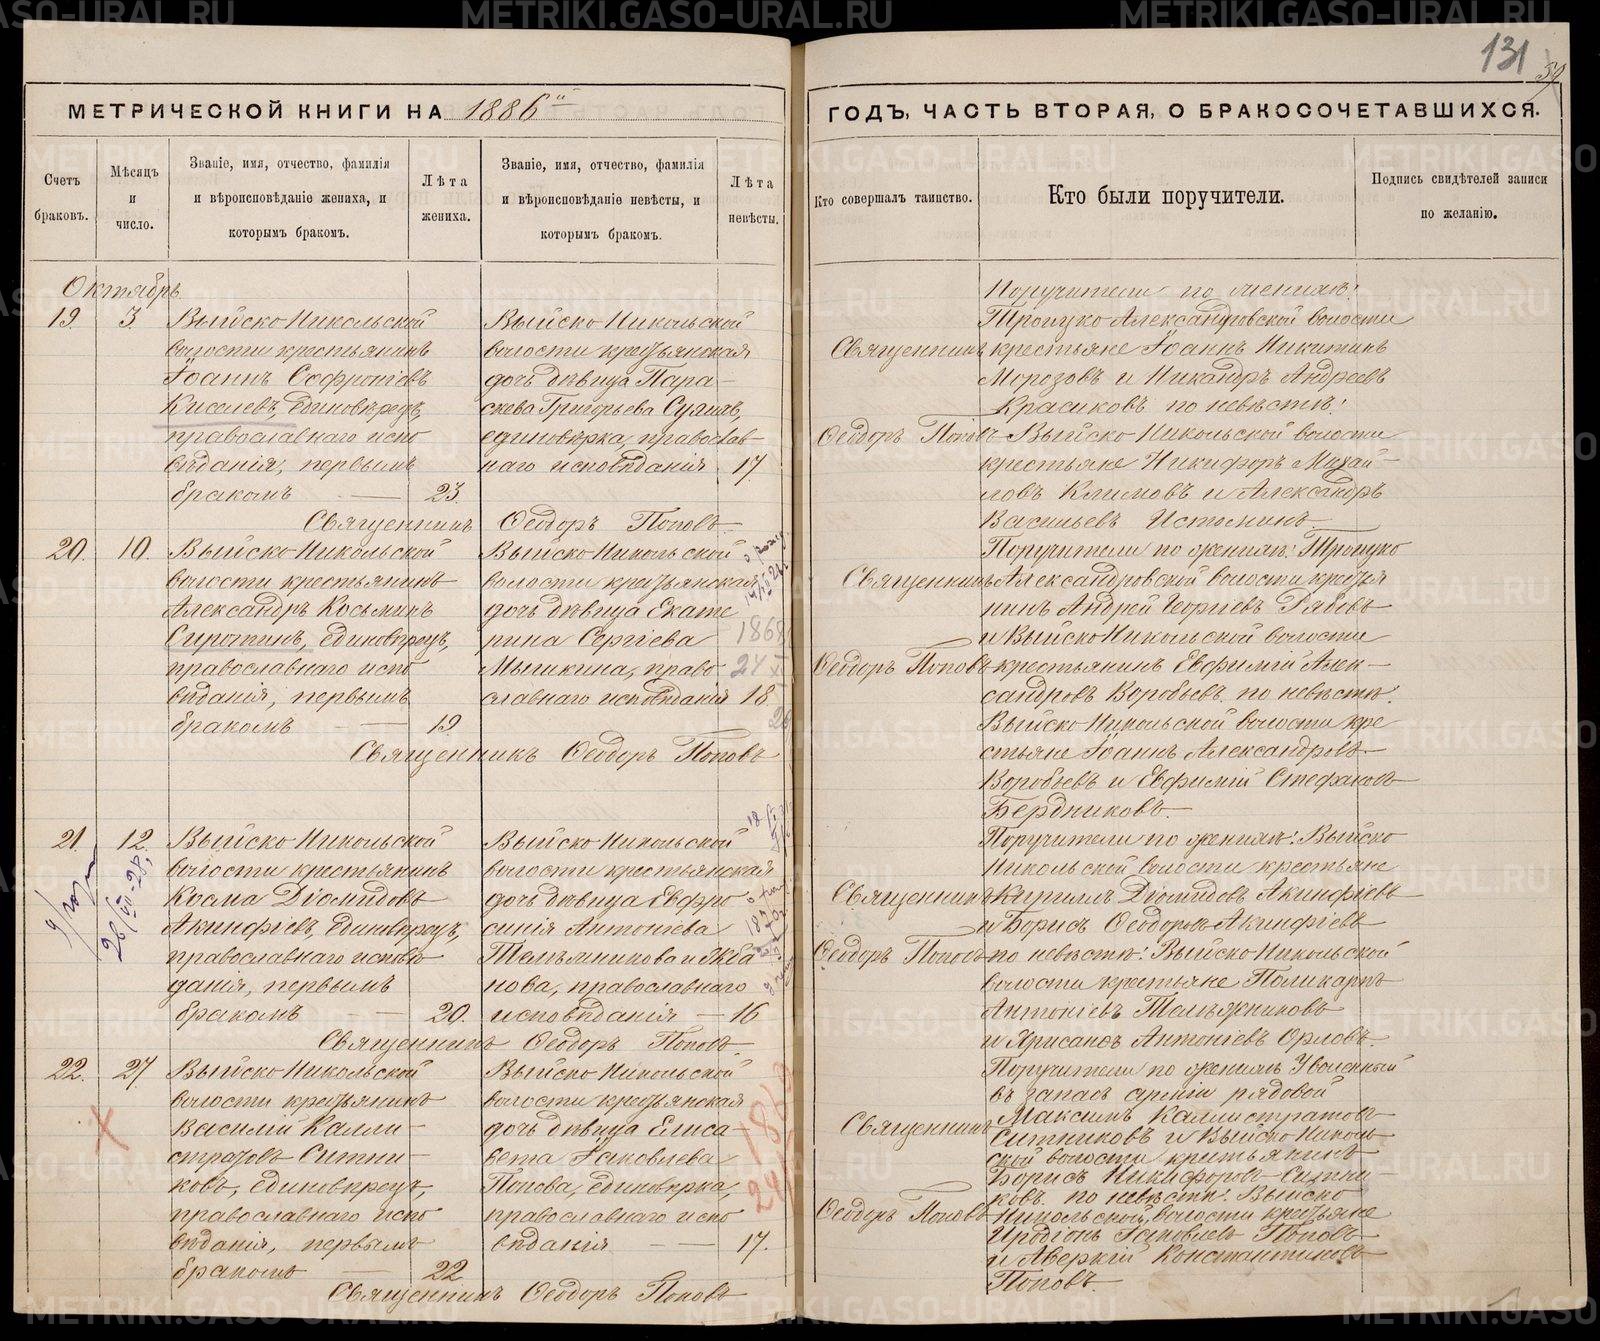 METRIKI.GASO-URAL.RU
131
57
МЕТРИЧЕСКОЙ КНИГИ НА 1886й
ГОДЪ, ЧАСТЬ ВТОРАЯ, О БРАКОСОЧЕТАВШИХСЯ.
Счетъ
браковъ.
Мѣсяцъ
и
число.
Званіе, имя, отчество, фамилія
и вѣроисповѣданіе жениха, и
которымъ бракомъ.
Лѣта
жениха.
Званіе, имя, отчество, фамилія
и вѣроисповѣданіе невѣсты, и
которымъ бракомъ.
Лѣта
невѣсты.
Кто совершалъ таинство.
Кто были поручители.
Подпись свидѣтелей записи
по желанію.
Октябрь
19. 3.
Выйско Никольской
волости крестьянинъ
Іоаннъ Софроніевъ
Киселевъ, единовѣрецъ,
православнаго испо
вѣданія, первымъ
бракомъ — 23.
Выйско Никольской
волости крестьянская
дочь дѣвица Пара-
скева Григорьева
единовѣрка, православ-
наго исповѣданія 17.
Священникъ
Ѳеодоръ Поповъ
Поручители по женихѣ:
Троицко Александровской волости
крестьяне Іоаннъ Никитинъ
Морозовъ и Никандръ Андреевъ
Красиковъ по невѣстѣ:
Выйско Никольской волости
крестьяне Никифоръ Михай-
ловъ Климовъ и Александръ
Васильевъ Истоминъ
Священникъ Ѳеодоръ Поповъ
20. 10.
Выйско Никольской
волости крестьянинъ
Александръ Косьминъ
Сиротинъ, единовѣрецъ,
православнаго испо
вѣданія, первымъ
бракомъ — 19.
Выйско Никольской
волости крестьянская
дочь дѣвица Екате
рина Сергіева
Мышкина, право
славнаго исповѣданія 18.
1868
24
Священникъ
Ѳеодоръ Поповъ
Поручители по женихѣ: Троицко
Александровской волости крестья
нинъ Андрей Георгіевъ Рябовъ
и Выйско Никольской волости
крестьянинъ Евфимій Алек-
сандровъ Воробьевъ. по невѣстѣ:
Выйско Никольской волости кре
стьяне Іоаннъ Александровъ
Воробьевъ и Евфимій Стефановъ
Бердниковъ.
Священникъ Ѳеодоръ Поповъ
21. 12.
26/VII-28.
Выйско Никольской
волости крестьянинъ
Косма Діомидовъ
Акинфіевъ, единовѣрецъ,
православнаго исповѣ
данія, первымъ
бракомъ — 20.
Выйско Никольской
волости крестьянская
дочь дѣвица Евфро
синія Антоніева
православнаго
исповѣданія — 16
Священникъ
Ѳеодоръ Поповъ
Поручители по женихѣ: Выйско
Никольской волости крестьяне
Кириллъ Діомидовъ Акинфіевъ
и Борисъ Ѳеодоровъ Акинфіевъ
по невѣстѣ: Выйско Никольской
волости крестьяне Поликарпъ
Антоніевъ
и Хрисанѳъ Антоніевъ Орловъ
Священникъ Ѳеодоръ Поповъ
22. 27
Выйско Никольской
волости крестьянинъ
Василій Калли-
стратовъ Ситни-
ковъ, единовѣрецъ,
православнаго испо
вѣданія, первымъ
бракомъ — 22
Выйско Никольской
волости крестьянская
дочь дѣвица Елиса-
вета Іаковлева
Попова, единовѣрка,
православнаго испо
вѣданія — 17.
Священникъ
Ѳеодоръ Поповъ
Поручители по женихѣ Уволенный
въ запасъ арміи рядовой
Максимъ Каллистратовъ
Ситниковъ и Выйско Николь-
ской волости крестьянинъ
Борисъ Никифоровъ Ситни-
ковъ. по невѣстѣ: Выйско
Никольской волости крестьяне
Иродіонъ Іаковлевъ Поповъ
и Аверкій Константиновъ
Поповъ.
Священникъ Ѳеодоръ Поповъ